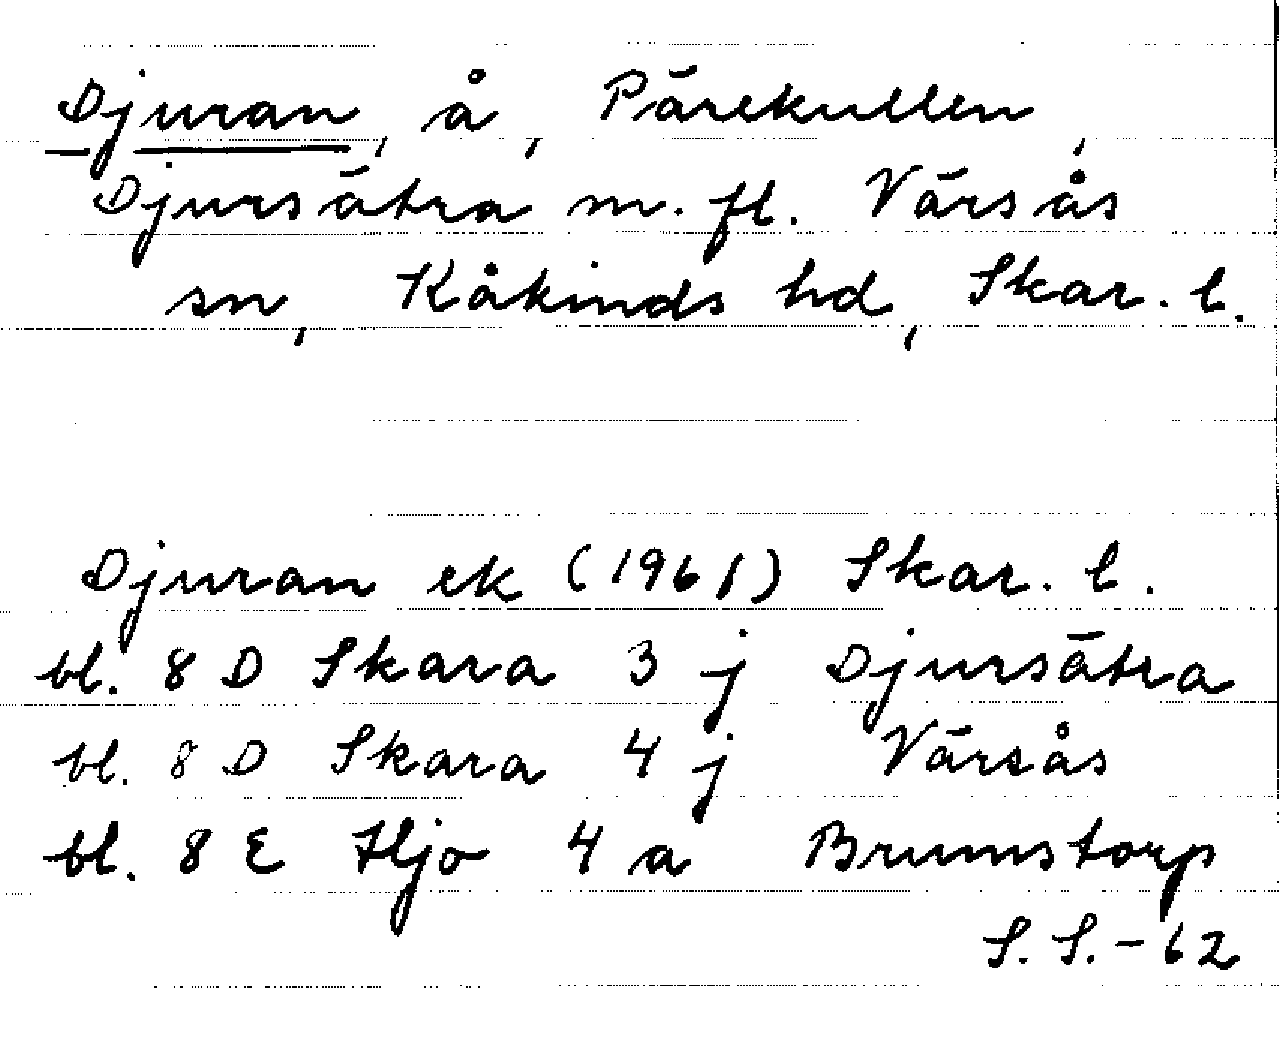 Djuran, å, Pärekullen,
Djursätra m. fl. Värsås
sn, Kåkinds hd, Skar. l.
Djuran ek (1961) Skar. l.
bl. 8 D Skara 3 j Djursätra
bl. 8 D Skara 4 j Värsås
bl. 8 E Hjo 4 a Brumstorp
S. S. - 62